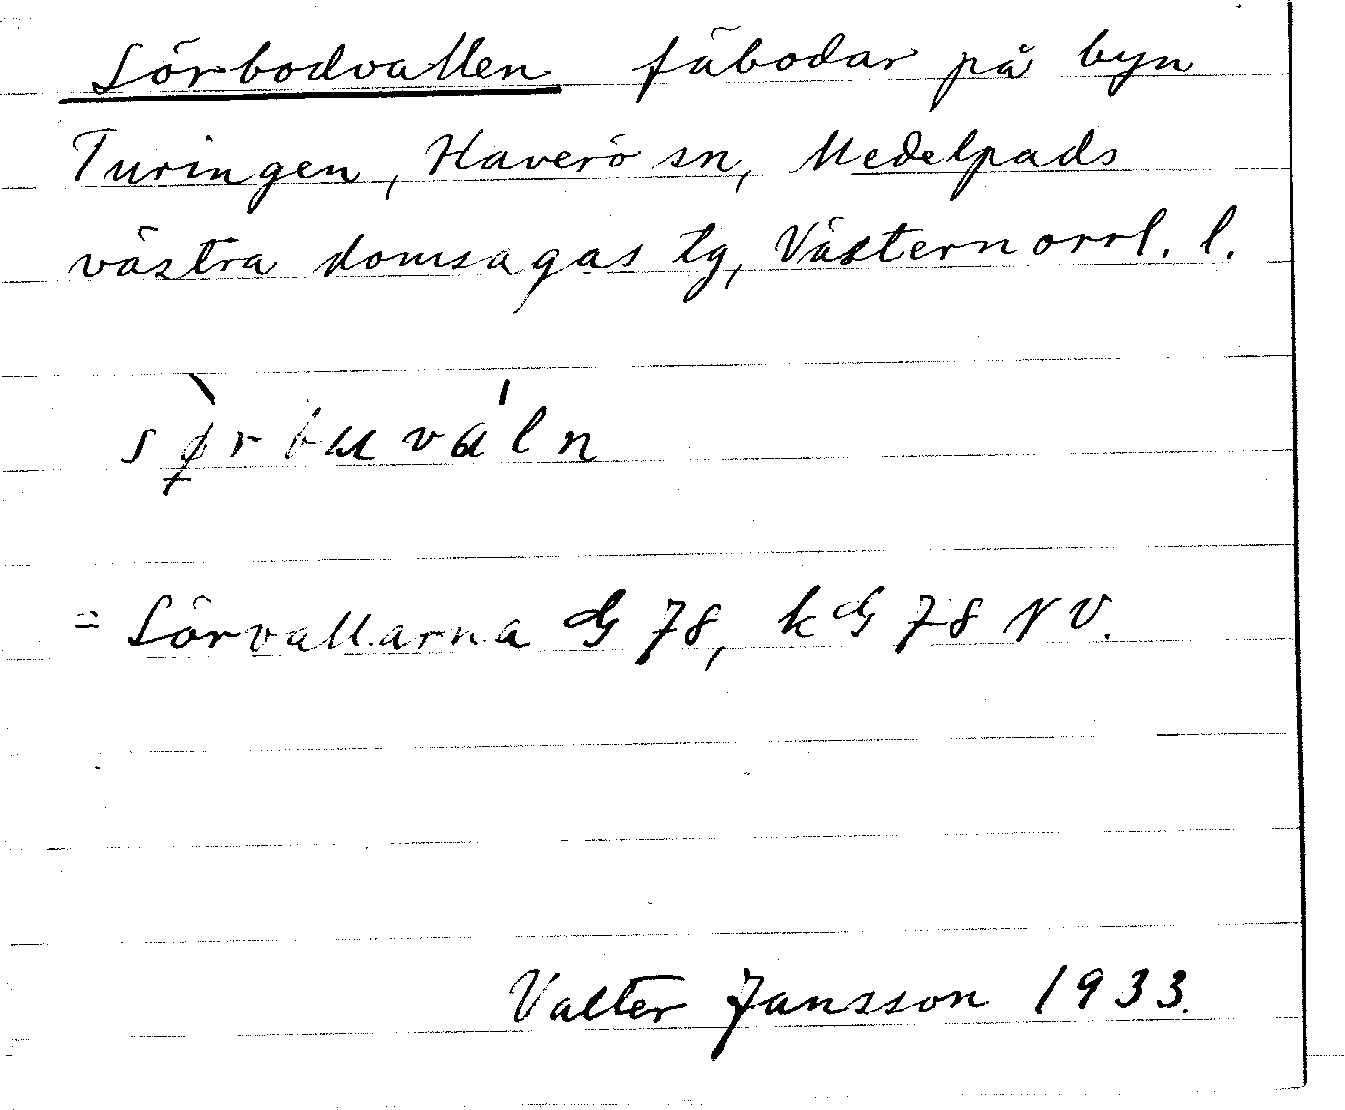 Sörbodvallen fäbodar på byn
Turingen, Haverö sn, Medelpads
västra domsagas tg, Västernorrl. l.
sø̀rbuváln
= Sörvallarna G 78, kG 78 NV.
Valter Jansson 1933.